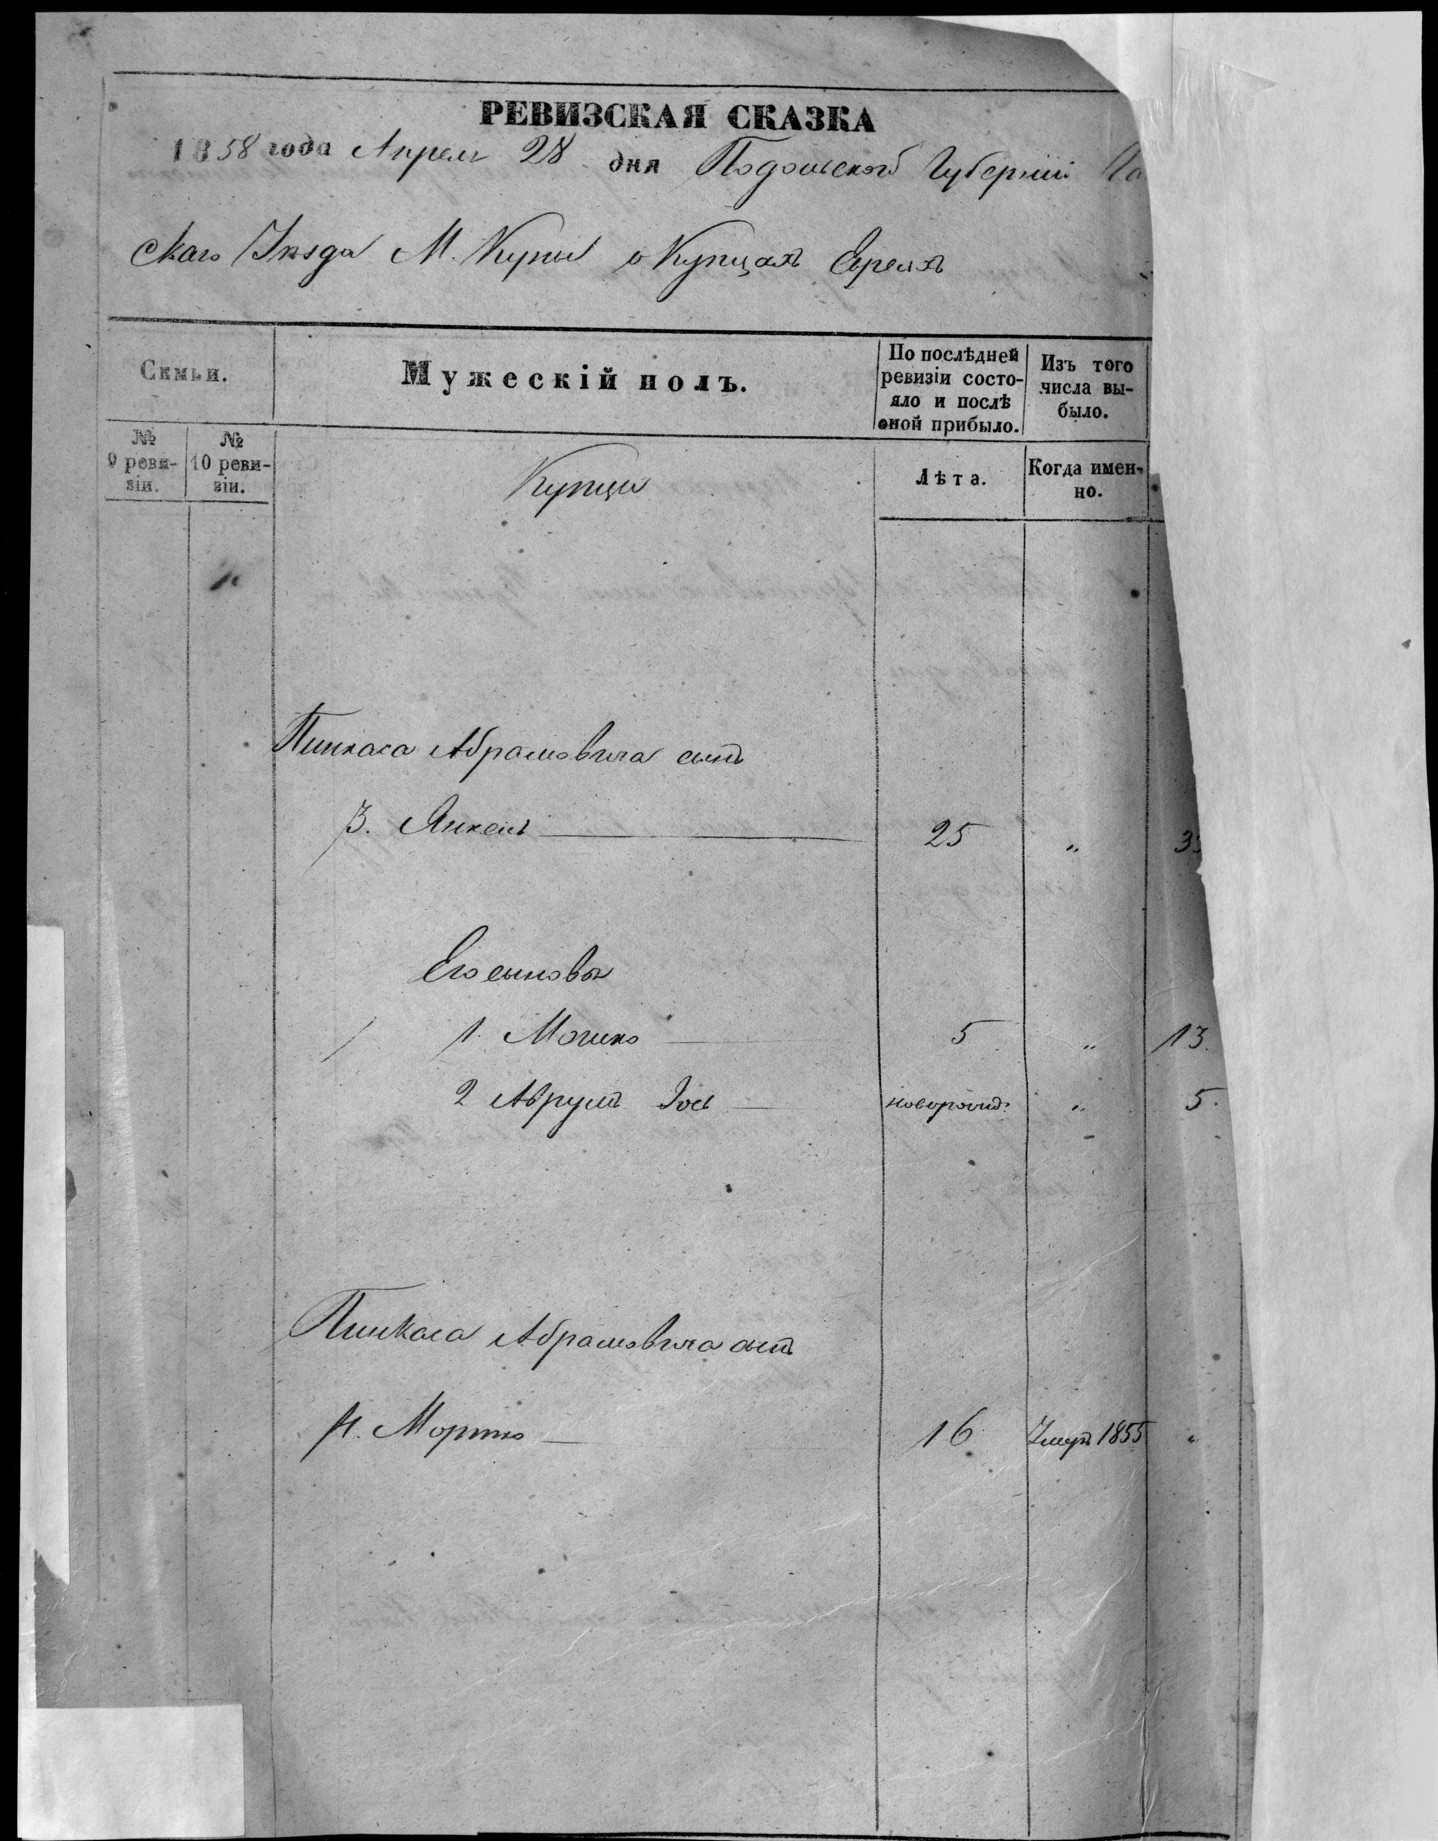 РЕВИЗСКАЯ СКАЗКА
1858 года Апреля 28 дня Подольской Губернии
скаго Уезда М. Купыл о Купцахъ Евреяхъ
Семьи.
Мужескій полъ.
По послѣдней ревизіи состо-
яло и послѣ
оной прибыло.
Изъ того
числа вы-
было.
№
9 реви-
зіи.
№
10 реви-
зіи.
Купцы
Лѣта.
Когда имен-
но.
Пинкаса Абрамовича сынъ
3. Янкель 25 „
Его сыновья
1. Мошко 5 „ 13.
2 Аврумъ Іось новорожд: „ 5.
Пинкаса Абрамовича сынъ
4. Мортко 16 Умеръ 1855 „